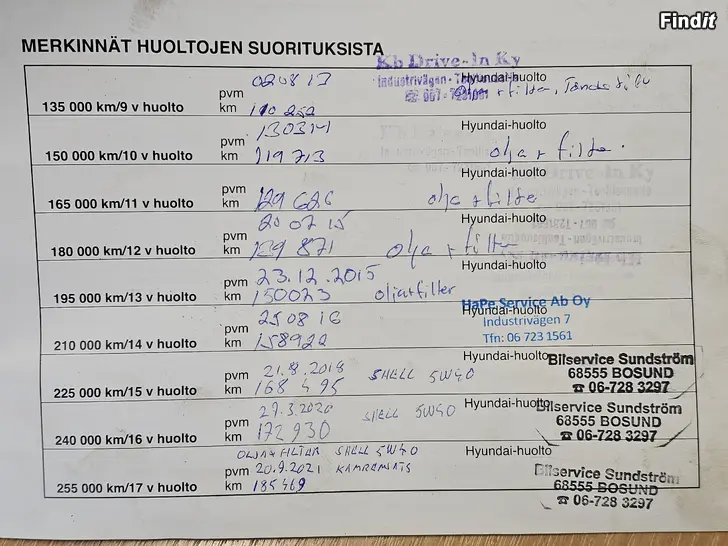 Findit
MERKINNÄT HUOLTOJEN SUORITUKSISTA
Kb Drive-In Ky
Industrivägen
pvm 020813 Hyundai-huolto
135 000 km/9 v huolto km 110 252 + filter,
pvm 130314 Hyundai-huolto
150 000 km/10 v huolto km 119 713 olja + filter
pvm Hyundai-huolto
165 000 km/11 v huolto km 129 626 olja + filter
pvm 20 07 15 Hyundai-huolto
180 000 km/12 v huolto km 139 871 olja + filter
pvm 23.12.2015 Hyundai-huolto
195 000 km/13 v huolto km 150023 olja+filter
HaPe Service Ab Oy
pvm 250816 Hyundai-huolto
Industrivägen 7
210 000 km/14 v huolto km 158922
Tfn: 06 723 1561
pvm 21.8.2018 SHELL 5W40 Hyundai-huolto
225 000 km/15 v huolto km 168 495
Bilservice Sundström
68555 BOSUND
☎ 06-728 3297
pvm 27.3.2020 SHELL 5W40 Hyundai-huolto
240 000 km/16 v huolto km 172 930
Bilservice Sundström
68555 BOSUND
☎ 06-728 3297
OLJA+FILTER SHELL 5W40 Hyundai-huolto
pvm 20.9.2021 KAMREMSATS
255 000 km/17 v huolto km 185469
Bilservice Sundström
68555 BOSUND
☎ 06-728 3297